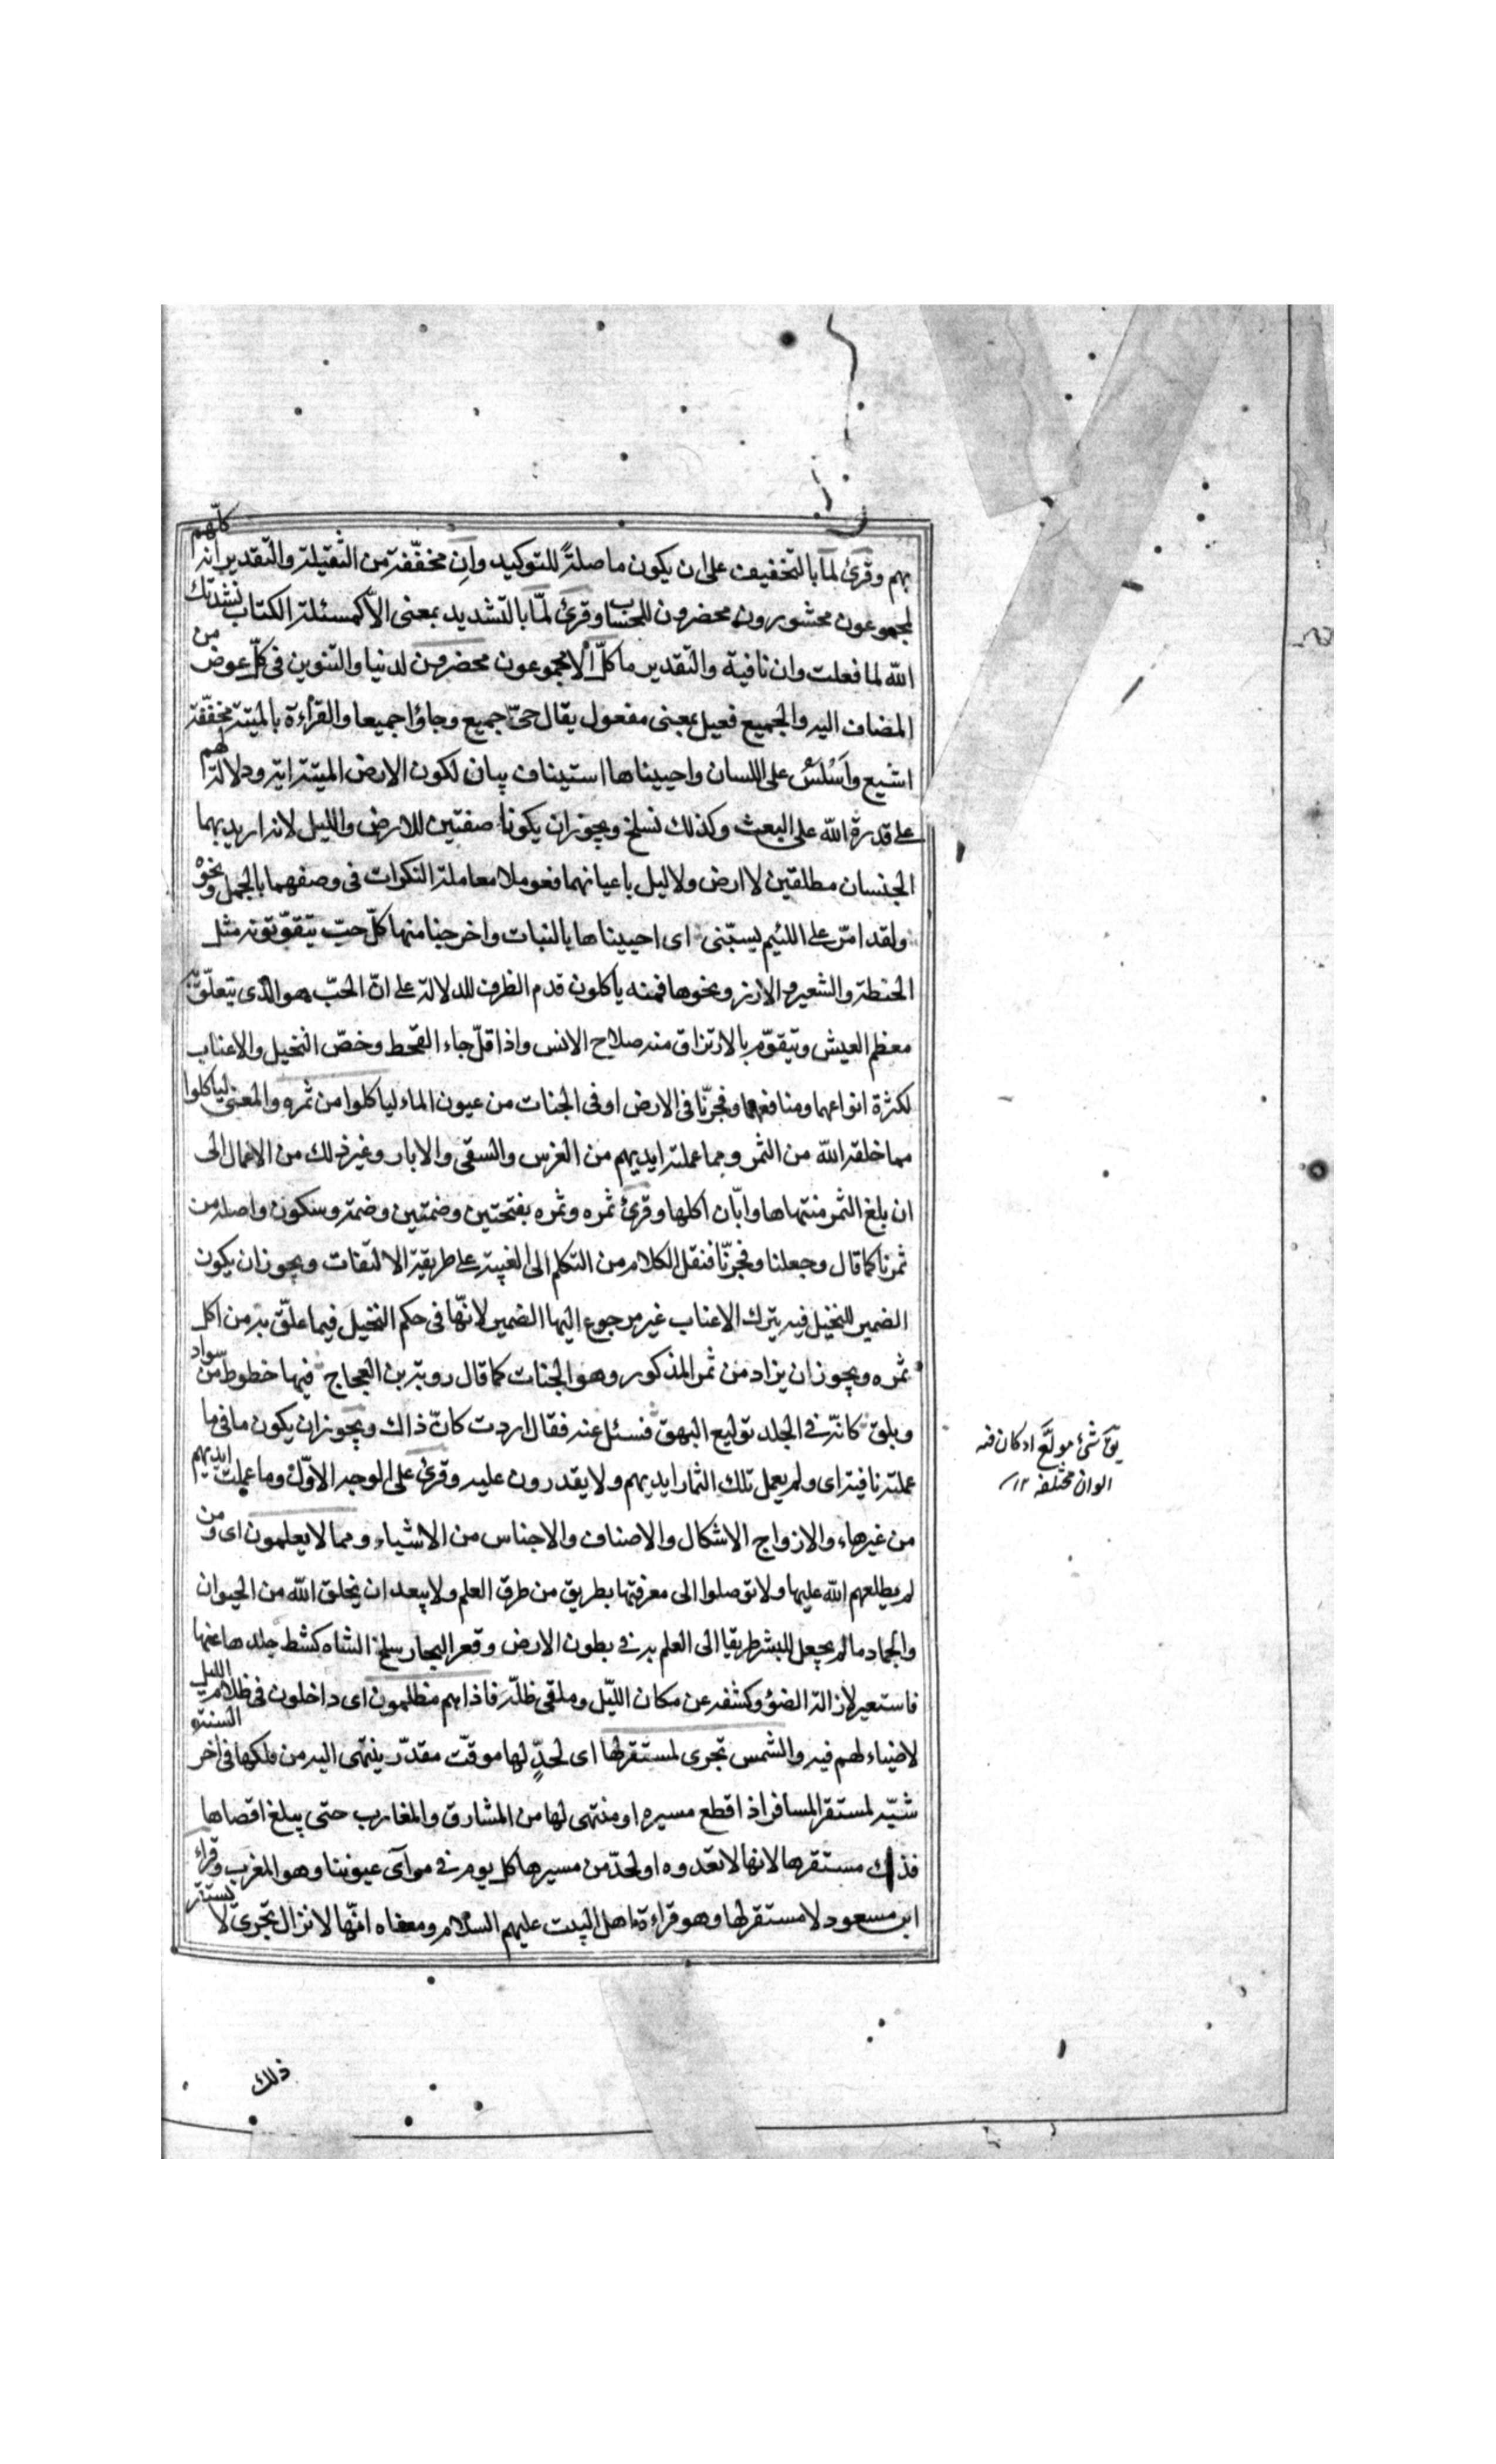 بهم وقرئ لما بالتخفيف على ان يكون ما صلةً للتوكيد وان مخفّفة من الثّقيلة والتّقدير انه كلّهم
لمجموعون محشورون محضرون للحساب وقرئ لمّا بالتّشديد بمعنى الّا كمسئلة الكتاب نشدتك
الله لما فعلت وان نافية والتقدير ما كلّ الا مجموعون محضرون لدينا والتنوين فى كلّ عوض من
المضاف اليه والجميع فعيل بمعنى مفعول يقال حىّ جميع وجاؤا جميعا والقراءة بالميتة مخفّفة
اشيع واَسْلَسُ على اللسان واحييناها استيناف بيان لكون الارض الميتة اية ودلالة لهم
على قدرة الله على البعث وكذلك نسلخ ويجوز ان يكونا صفتين للارض والليل لانه اريد بهما
الجنسان مطلقين لا ارض ولا ليل باعيانهما فعوملا معاملة النكرات فى وصفهما بالجمل ونحوه
ولقد امرّ على اللئيم يسبّنى اى احييناها بالنبات واخرجنا منها كلّ حبّ يتقوّتونه مثل
الحنطة والشعير والارز ونحوها فمنه ياكلون قدم الظرف للدلالة على انّ الحبّ هو الذى يتعلّق به
معظم العيش وتيقوّم بالارتزاق منه صلاح الانس واذا قلّ جاء القحط وخصّ النخيل والاعناب
لكثرة انواعهما ومنافعهما وفجرنّا فى الارض او فى الجنات من عيون الماء لياكلوا من ثمره والمعنى لياكلوا
مما خلقه الله من الثمر ومما عملته ايديهم من الغرس والسقى والابار وغير ذلك من الاعمال الى
ان بلغ الثمر منتهاها وابّان اكلها وقرئ ثمره وثمره بفتحتين وضمتين وضمة وسكون واصله من
ثمرنا كما قال وجعلنا وفجرنّا فنقل الكلام من التكلم الى الغيبة على طريقة الالتفات ويجوز ان يكون
الضمير للنخيل فيه يترك الاعناب غير مرجوع اليها الضمير لانّها فى حكم النخيل فيما علّق به من اكل
ثمره ويجوز ان يراد من ثمر المذكور وهو الجنات كما قال روبة بن العجاج فيها خطوط من سواد
وبلق كانّه فى الجلد توليع البهق فسئل عنه فقال اردت كانّ ذاك ويجوز ان يكون ما فى ما
عملته نافية اى ولم يعمل تلك الثمار ايديهم ولا يقدرون عليه وقرئ على الوجه الاوّل وما عملت ايديهم
من غيرهاء والازواج الاشكال والاصناف والاجناس من الاشياء ومما لا يعلمون اى ومن
لم يطلعهم الله عليها ولا توصلوا الى معرفتها بطريق من طرق العلم ولا يبعد ان يخلق الله من الحيوان
والجماد ما لم يجعل للبشر طريقا الى العلم به فى بطون الارض وقعر البحار سلخ الشاه كشط جلدها عنها
فاستعير لازالة الضوؤ وكشفه عن مكان اللّيل وملقى ظلّه فاذا هم مظلمون اى داخلون فى ظلام الليل
لا ضياء لهم فيه والشمس تجرى لمستقر لها اى لحدٍّ لها موقّت مقدّر ينتهى اليه من فلكها فى اخر السنة
شبّه لمستقر المسافر اذا قطع مسيره او منتهى لها من المشارق والمغارب حتى يبلغ اقصاها
فذلك مستقرها لانها لا تعدوه او لحدّ من مسيرها كل يوم فى مرآى عيوننا وهو المغرب وقراء
ابن مسعود لا مستقر لها وهو قراءة اهل البيت عليهم السلام ومعناه انّها لا تزال تجرى لا يستقر
يق شئ مولّع اذ كان فيه
الوان مختلفه ۱۲
ذلك